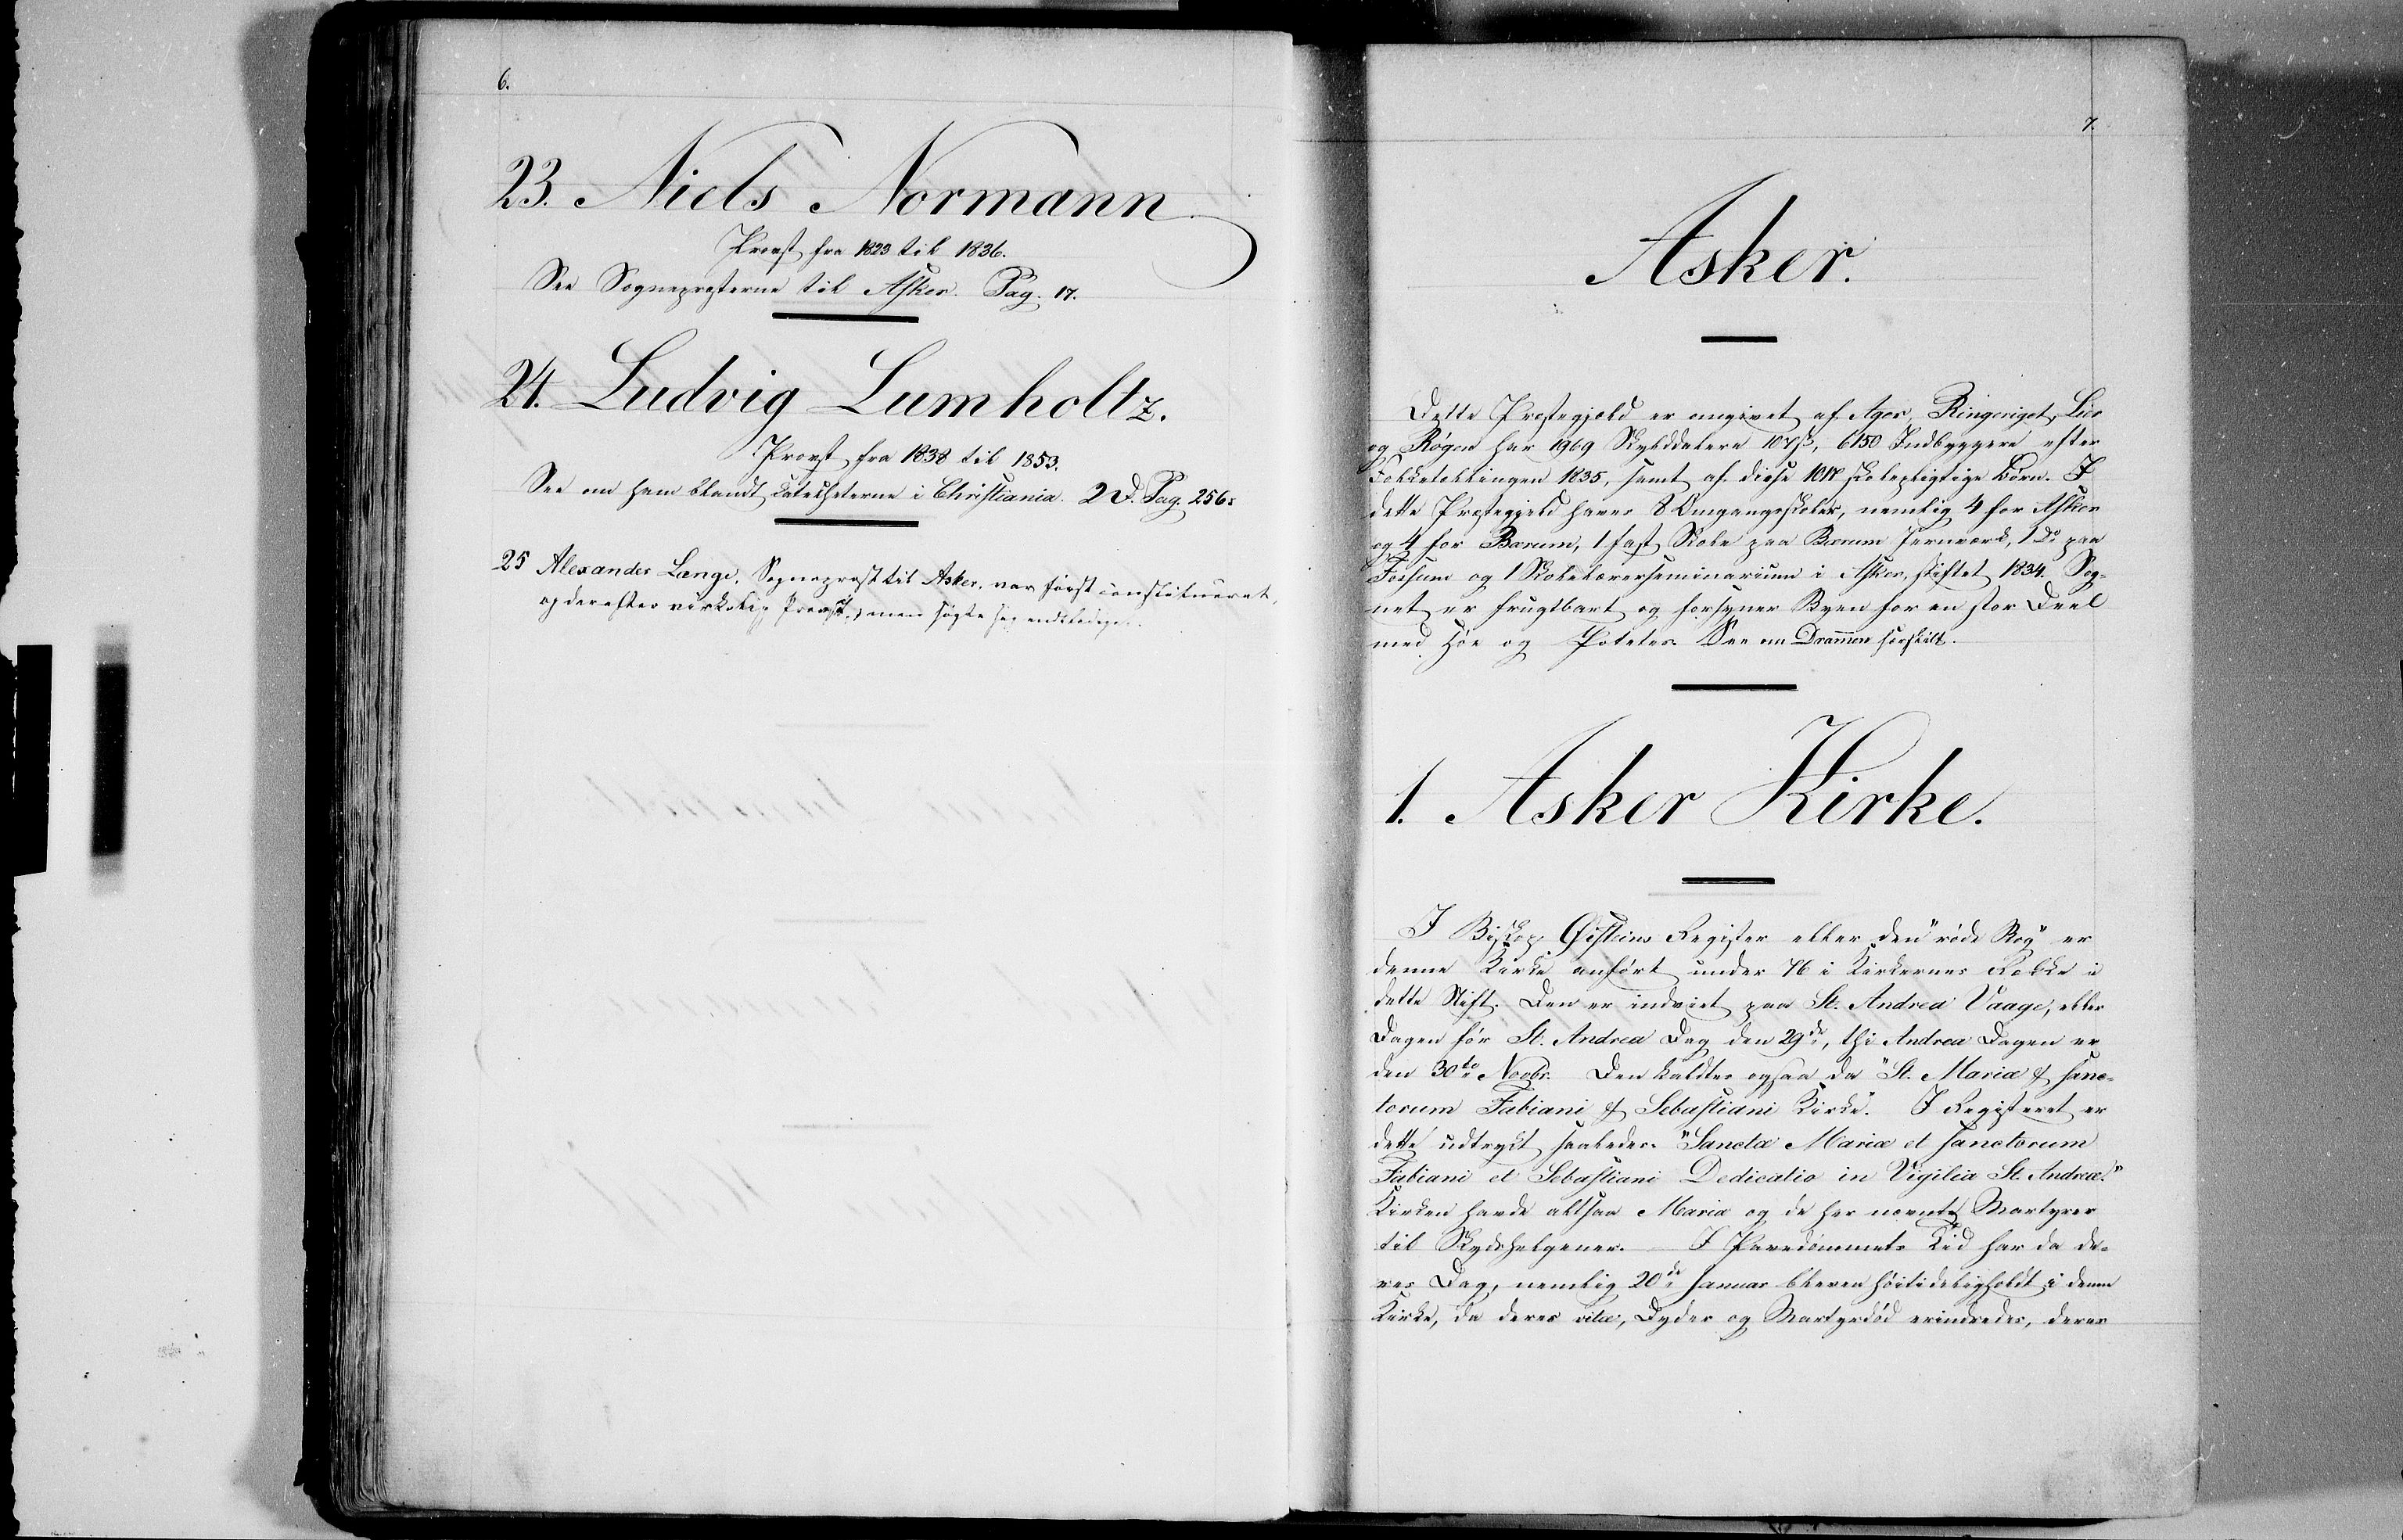 6.
23. Niels Normann
Provst fra 1823 til 1836.
See Sognepræsterne til Asker. Pag. 17.
24. Ludvig Lumholtz.
Provst fra 1838 til 1853.
See om ham blandt Catecheterne i Christiania. 2 D. Pag. 256.
25 Alexander Lange, Sognepræst til Asker, var først constitueret,
og derefter virkelig Provst, men søgte sig entlediget.
7.
Asker.
Dette Præstegjeld er omgivet af Ager, Ringeriget, Lier
og Røgen har 1969 Skylddalere 107 ß, 6150 Indbyggere efter
Folketællingen 1835, samt af disse 1017 skolepligtige Børn. I
dette Præstegjeld haves 8 Omgangsskoler, nemlig 4 for Asker
og 4 for Bærum, 1 fast Skole paa Bærum Jernværk, 1 Do paa
Fossum og 1 Skolelærerseminarium i Asker, stiftet 1834. Sog-
net er frugtbart og forsyner Byen for en stor Deel
med Høe og Poteter. See om Drammen særskilt.
1. Asker Kirke.
I Biskop Øisteins Register eller den "røde Bog" er
denne Kirke anført under 76 i Kirkernes Række i
dette Stift. Den er indviet paa St. Andreæ Vaage, eller
Dagen før St. Andreæ Dag den 29de, thi Andreæ Dagen er
den 30te Novbr. Den kaldtes ogsaa da "St. Mariæ & sanc-
torum Fabiani & Sebastiani Kirke". I Registeret er
dette udtrykt saaledes: "Sanctæ Mariæ et sanctorum
Fabiani et Sebastiani Dedicatio in Vigilia St. Andreæ."
Kirken havde altsaa Maria og de her nævnte Martyrer
til Skydshelgener. — I Pavedømmets Tid har da de-
res Dag, nemlig 20de Januar bleven høitideligholdt i denne
Kirke, da deres vitæ, Dyder og Martyrdød erindredes, deres